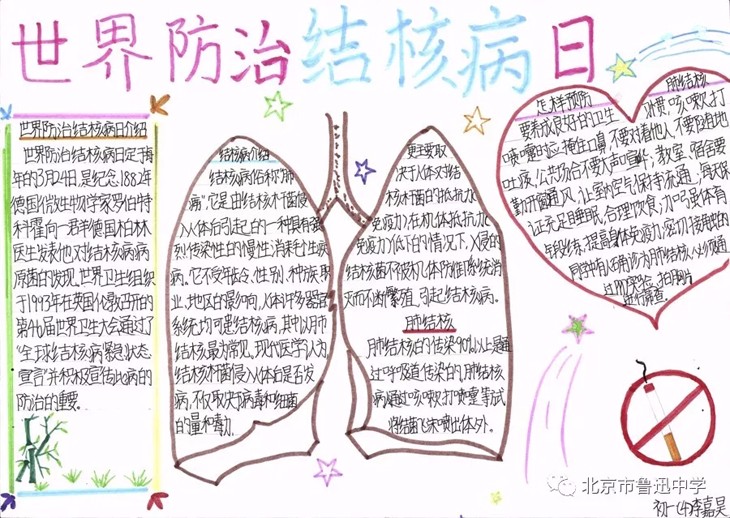 世界防治结核病日
世界防治结核病日介绍
世界防治结核病日定于每
年的3月24日,是纪念1882年
德国微生物学家罗伯特
科霍向一群德国柏林
医生发表他对结核病病
原菌的发现。世界卫生组织
于1993年在英国伦敦召开的
第46届世界卫生大会通过了
“全球结核病紧急状态
宣言”并积极宣传此病的
防治的重要。
结核病介绍
结核病俗称“肺
痨”,它是由结核杆菌侵
入人体后引起的一种具有强
烈传染性的慢性消耗性疾
病。它不受年龄、性别、种族、职
业、地区的影响,人体许多器官、
系统均可患结核病,其中以肺
结核最为常见。现代医学认为
结核杆菌侵入人体后是否发
病,不仅取决于病毒和细菌
的量和毒力,
更主要取
决于人体对结
核杆菌的抵抗力(
免疫力),在机体抵抗力(
免疫力)低下的情况下,入侵的
结核菌不被机体防御系统消
灭而不断繁殖,引起结核病。
肺结核
肺结核的传染90%以上是通
过呼吸道传染的,肺结核
病通过咳嗽、打喷嚏等,试
将结菌飞沫喷出体外。
怎样预防
肺结核
要养成良好的卫生
习惯,咳嗽、打
喷嚏时应掩住口鼻,不要对着他人,不要随地
吐痰,公共场合不要大声喧哗;教室、宿舍要
勤开窗通风,让室内空气保持流通;每天保
证充足睡眠,合理饮食,加强体育
锻炼,提高身体免疫力;密切接触的
同学中有活动肺结核人必须通
过PPD实验、拍胸片
进行筛查。
北京市鲁迅中学
初一(4)李嘉昊